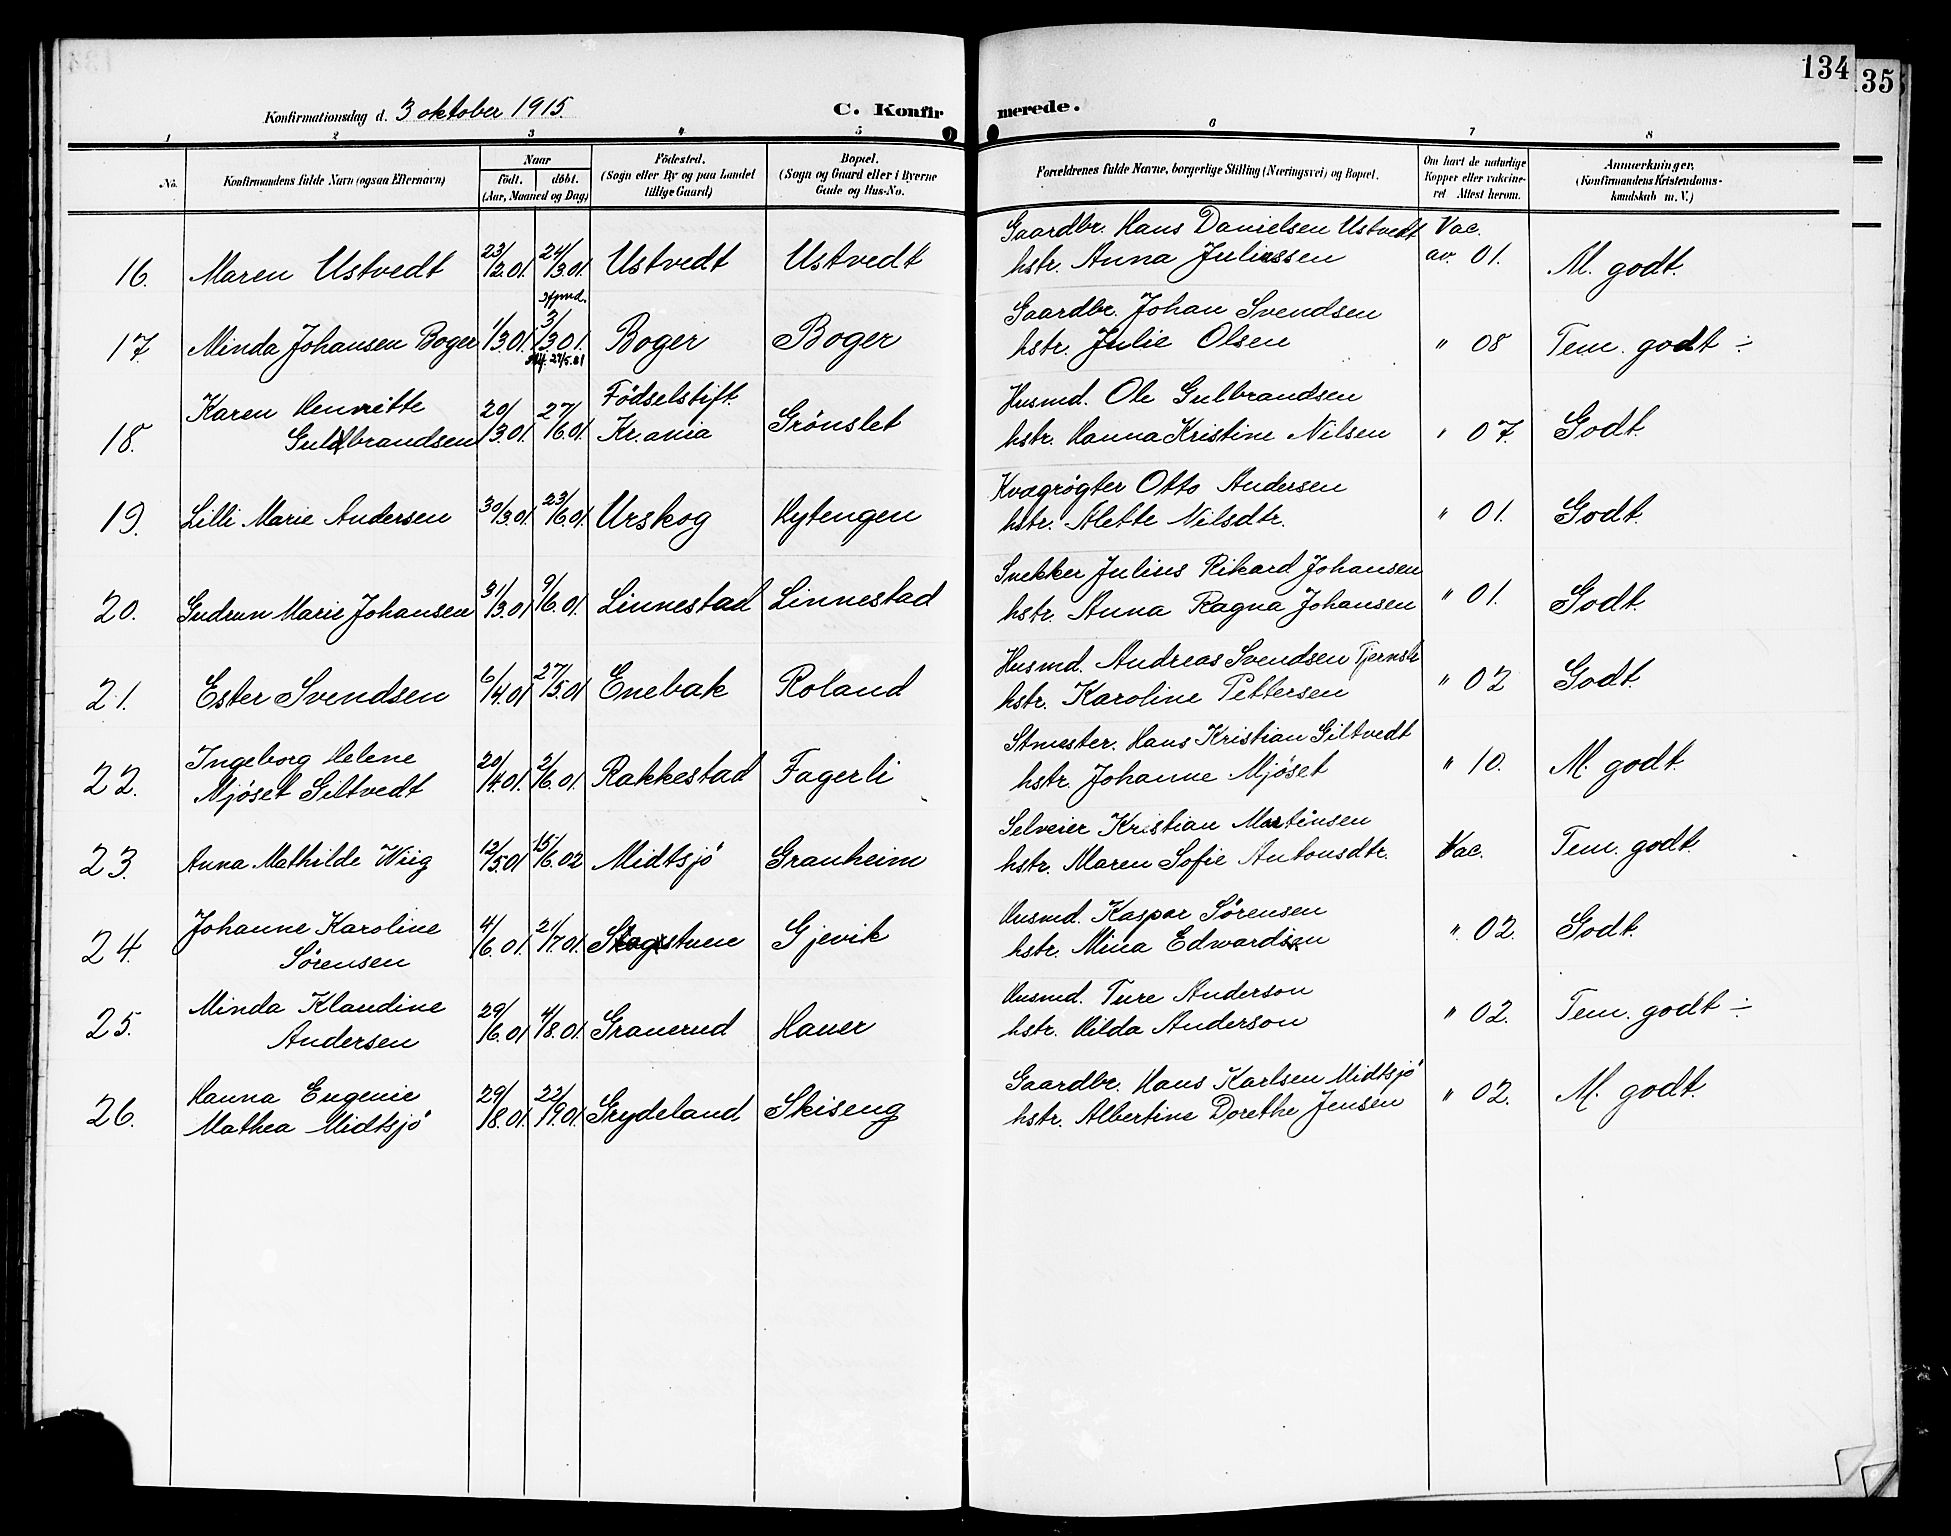 134
35
Konfirmationsdag d. 3 oktober 1915. C. Konfirmerede.
1 2 3 4 5 6 7 8
No. Konfirmandens fulde Navn (ogsaa Efternavn) Naar født. døbt. (Aar, Maaned og Dag) Fødested. (Sogn eller By og paa Landet tillige Gaard) Bopæl. (Sogn og Gaard eller i Byerne Gade og Hus-No. Forældrenes fulde Navne, borgerlige Stilling (Næringsvei) og Bopæl. Om havt de naturlige Kopper eller vaccineret Attest herom. Anmærkninger, (Konfirmandens Kristendomskundskab m. V.)
Gaardbr. Hans Danielsen Ustvedt Vac.
16. Maren Ustvedt 23/12.01. 24/3.01. Ustvedt Ustvedt hstr. Anna Juliussen av. 01. M. godt.
hjmd. Gaardbr. Johan Svendsen
17. Minda Johansen Boger 1/3.01. 3/3.01. Boger Boger hstr. Julie Olsen " 08 Tem. godt ÷
27/5.01
Karen Henriette Fødselstift. Husmd. Ole Gulbrandsen
18. Guldbrandsen 20/3.01. 27/6.01. Kr.ania Grønslet hstr. Hanna Kristine Nilsen " 07. Godt.
Kvægrøgter Otto Andersen
19. Lilli Marie Andersen 30/3.01. 23/6.01. Urskog Nytengen hstr. Alette Nilsdtr. " 01. Godt.
Snekker Julius Rikard Johansen
20. Gudrun Marie Johansen 31/3.01 9/6.01. Linnestad Linnestad hstr. Anna Ragna Johansen " 01. Godt.
Husmd. Andreas Svendsen
21. Ester Svendsen 6/4.01 27/5.01 Enebak Roland hstr. Karoline Pettersen " 02 Godt.
Ingeborg Helene Stmester. Hans Kristian Giltvedt
22. Mjøset Giltvedt 20/4.01. 2/6.01. Rakkestad Fagerli hstr. Johanne Mjøset " 10. M. godt.
Selveier Kristian Martinsen
23. Anna Mathilde Wiig 12/5.01 15/6.02 Midtsjö Granheim hstr. Maren Sofie Antonsdtr. Vac. Tem. godt.
Johanne Karoline Husmd. Kaspar Sörensen
24. Sörensen 4/6.01. 21/7.01. Skogstuen Gjevik hstr. Mina Edwardsen " 02. Godt.
Minda Klaudine Husmd. Ture Anderson
25. Andersen 29/6.01 4/8.01. Granerud Hauer hstr. Hilda Anderson " 02. Tem. godt ÷
Hanna Eugenie Gaardbr. Hans Karlsen Midtsjö
26. Mathea Midtsjö 29/8.01. 22/9.01. Grydeland Skiseng hstr. Albertine Dorethe Jensen " 02. M. godt.